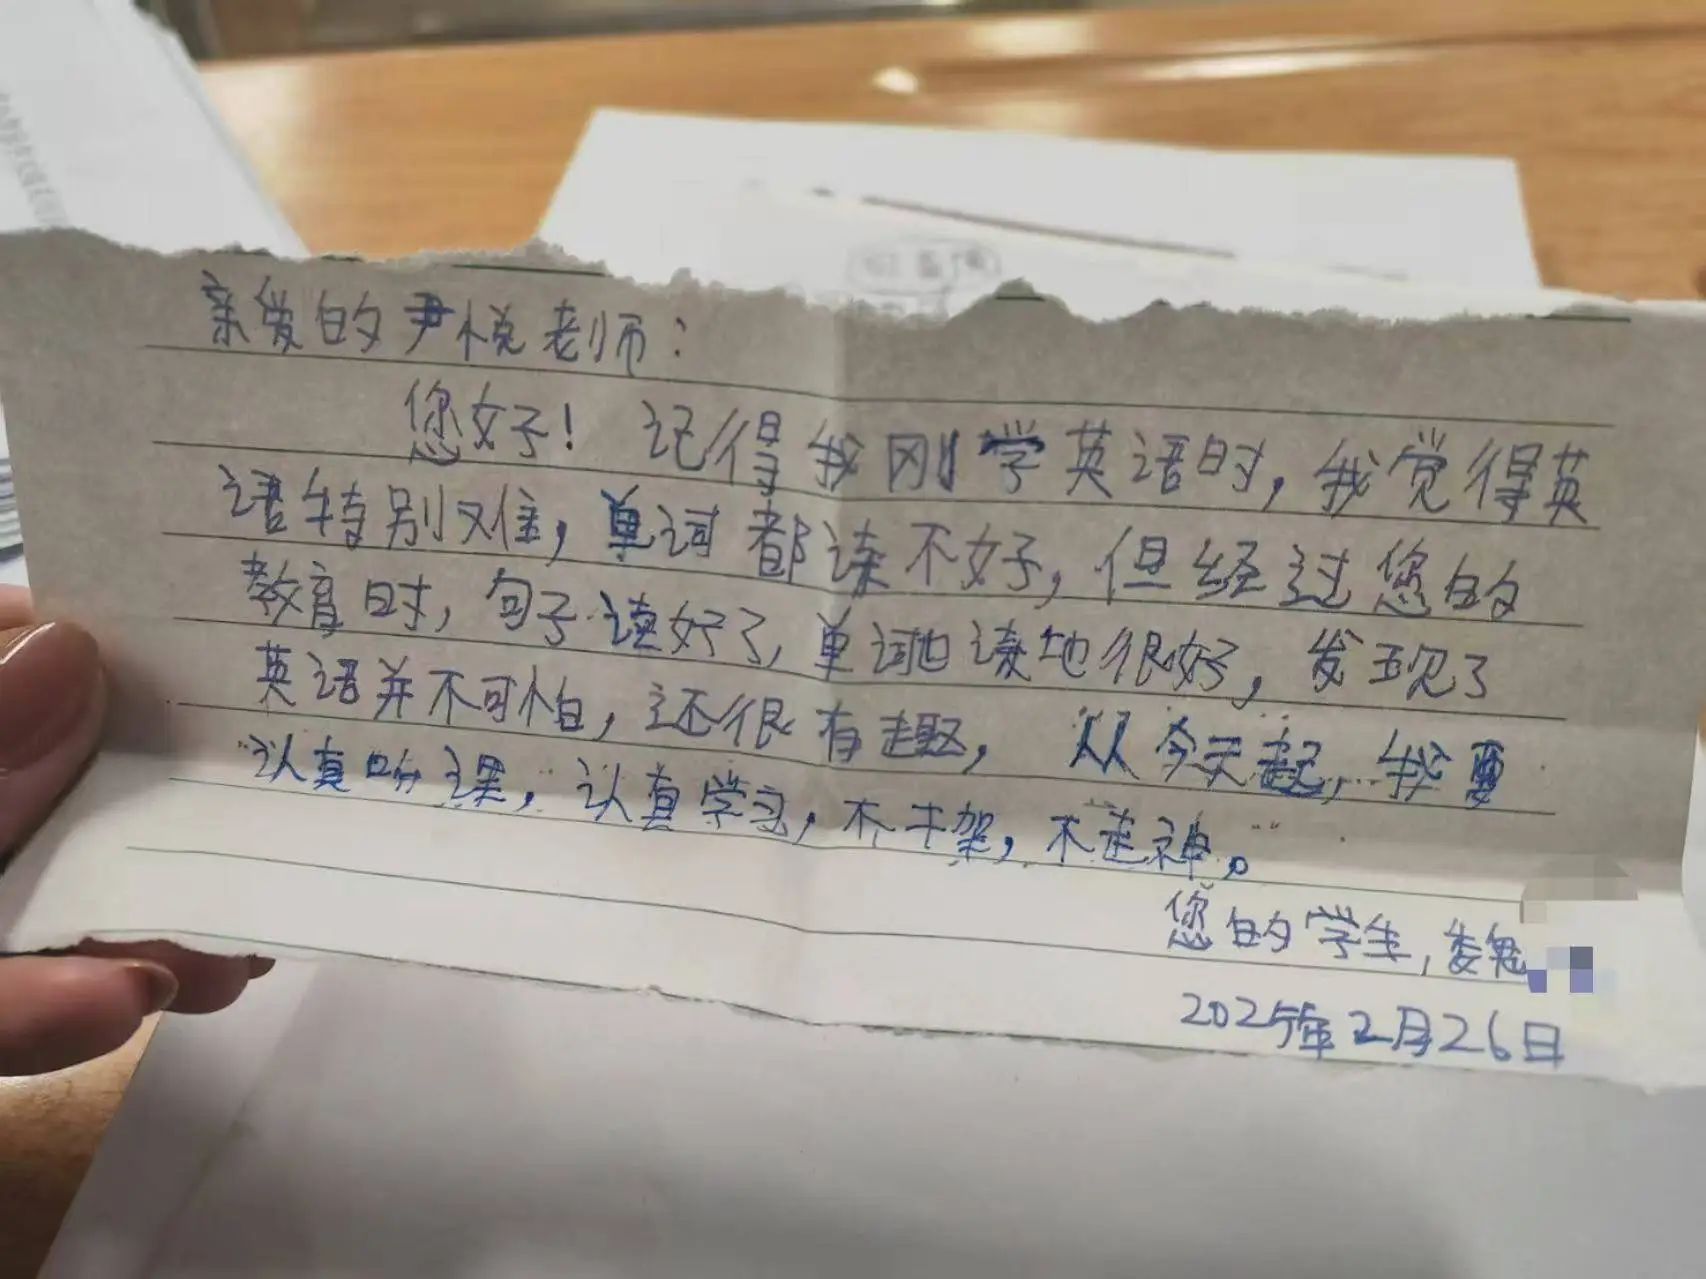 亲爱的尹悦老师：
您好！记得我刚学英语时，我觉得英
语特别难，单词都读不好，但经过您的
教育时，句子读好了，单词也读地很好，发现了
英语并不可怕，还很有趣，从今天起，我要
认真听课，认真学习，不干架，不走神。
您的学生，娄
2025年2月26日